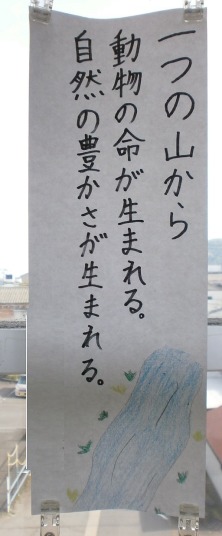 一つの山から
動物の命が生まれる。
自然の豊かさが生まれる。